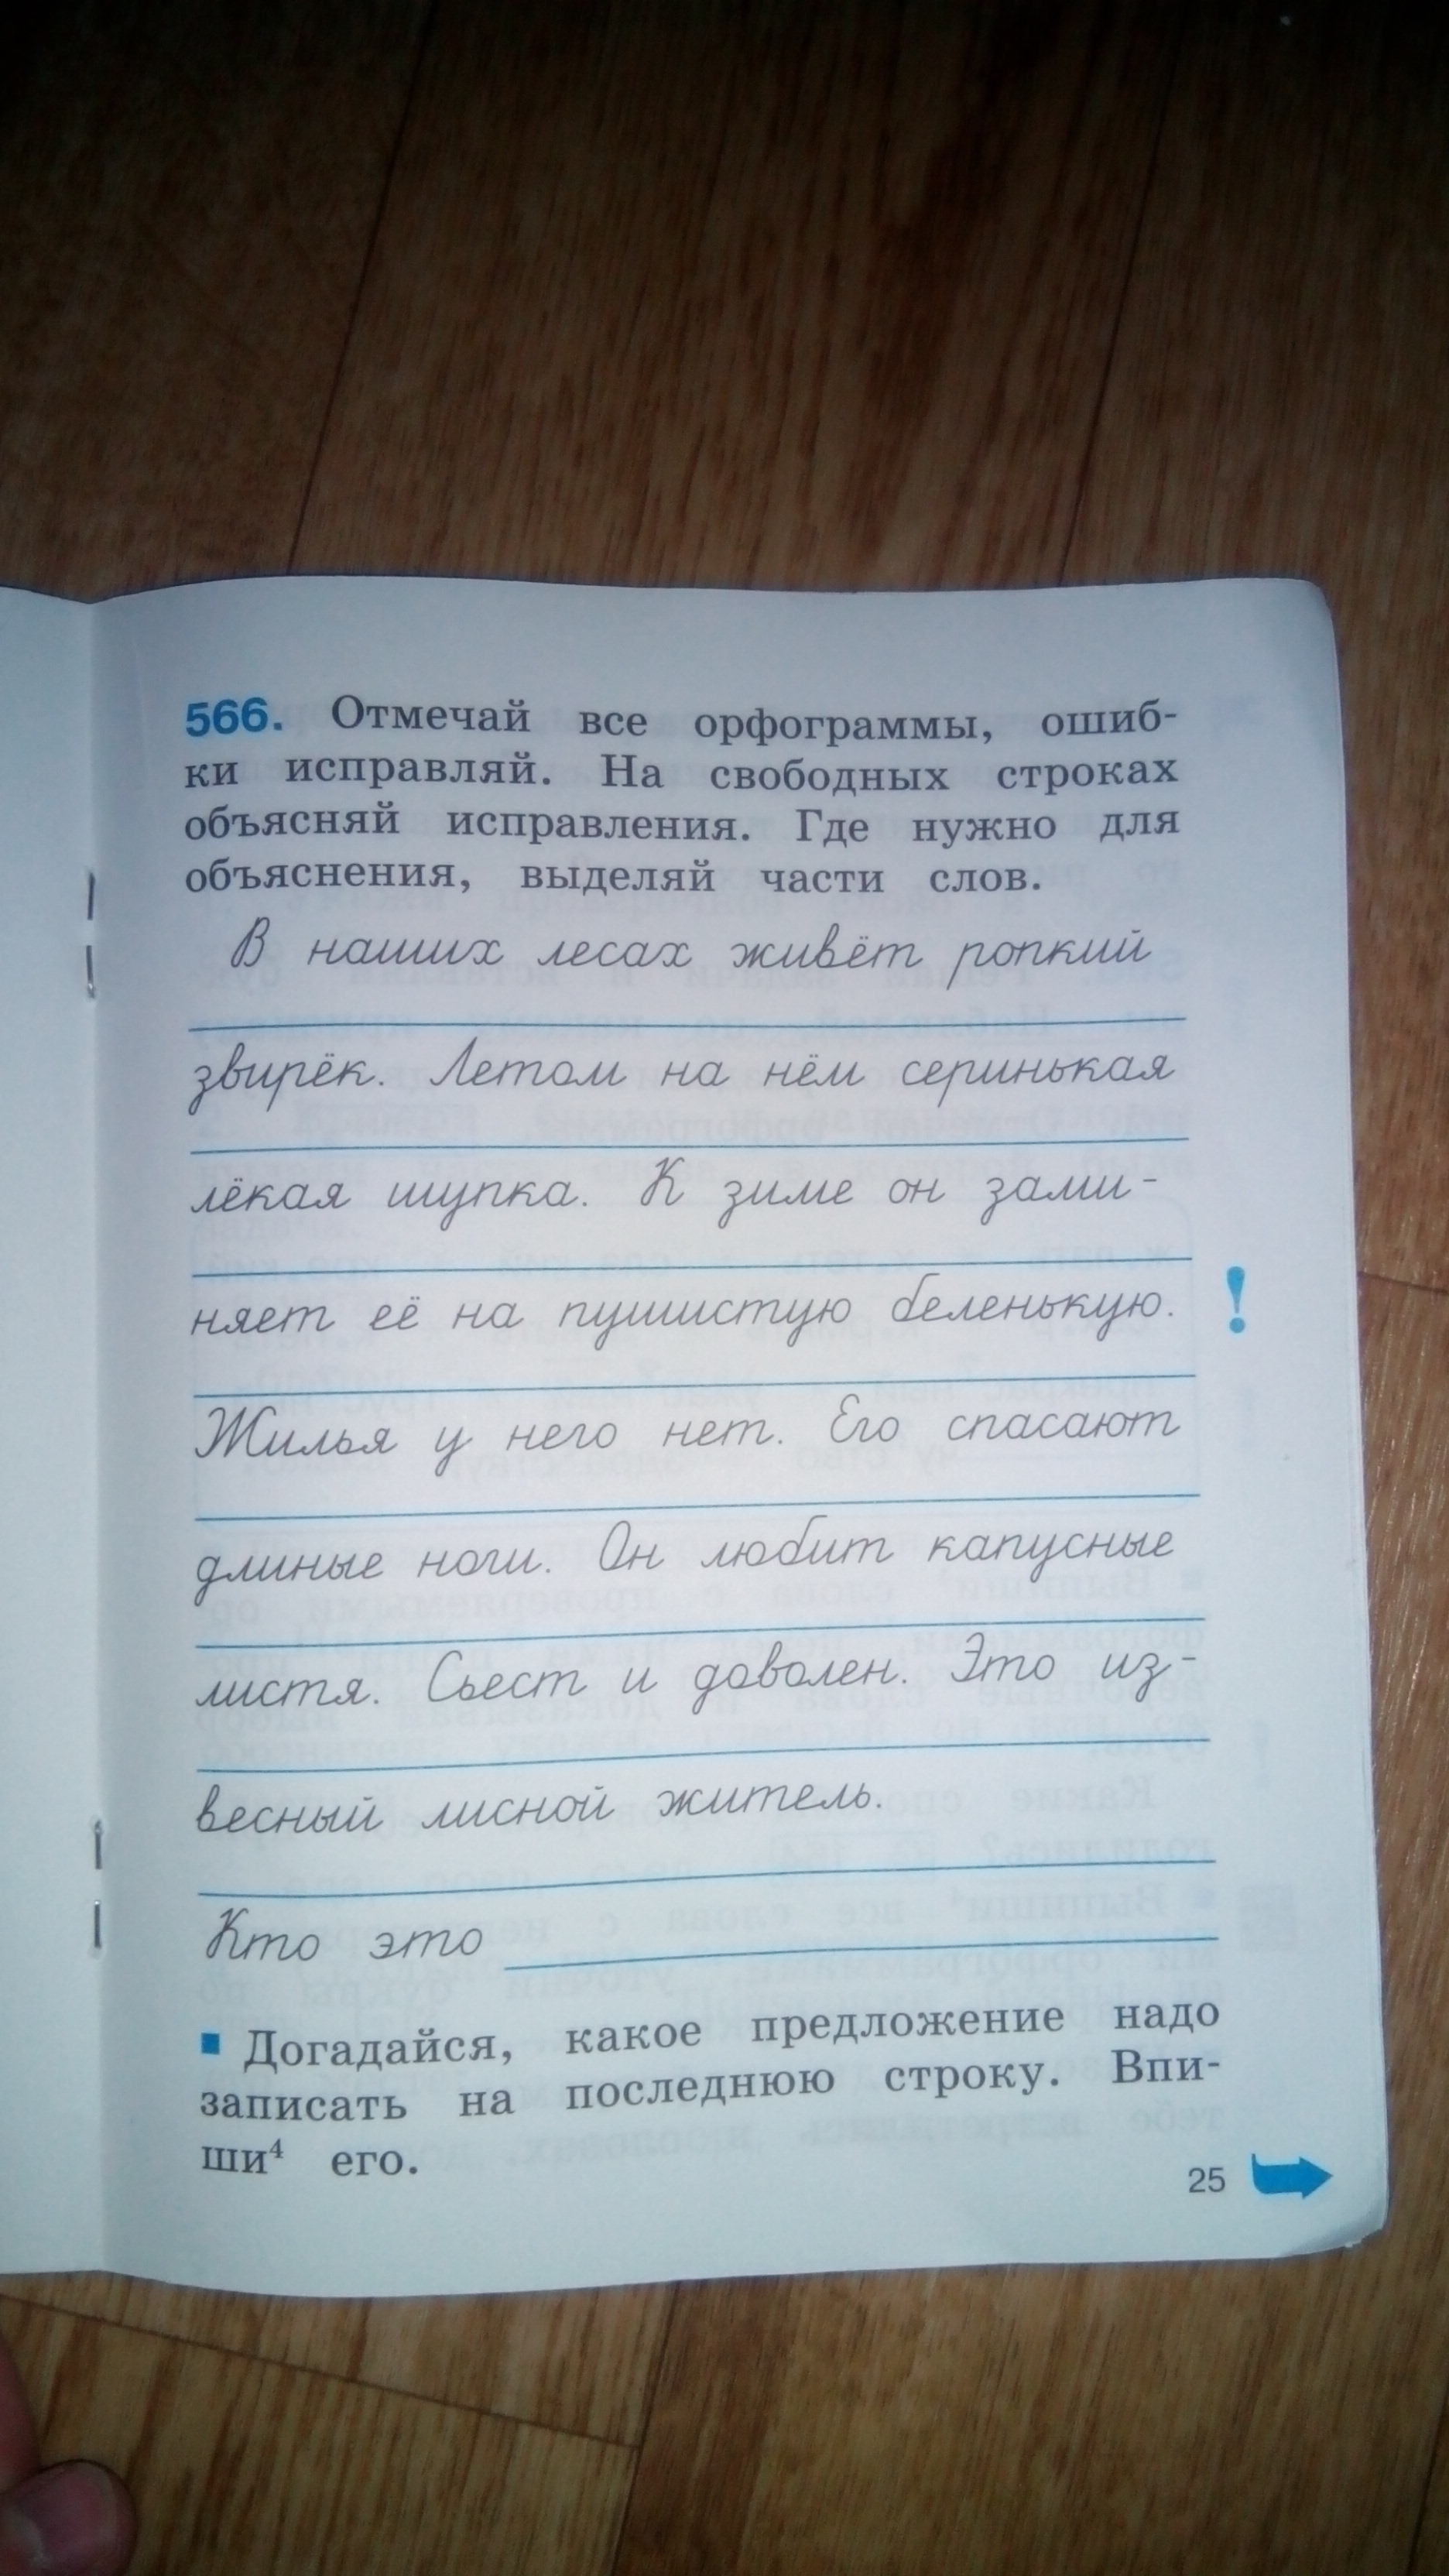 566. Отмечай все орфограммы, ошиб-
ки исправляй. На свободных строках
объясняй исправления. Где нужно для
объяснения, выделяй части слов.
В наших лесах живёт ропкий
звирёк. Летом на нём серинькая
лёкая шупка. К зиме он зами-
няет её на пушистую беленькую.
!
Жилья у него нет. Его спасают
длиные ноги. Он любит капусные
листя. Сьест и доволен. Это из-
весный лисной житель.
Кто это
▪ Догадайся, какое предложение надо
записать на последнюю строку. Впи-
ши⁴ его.
25